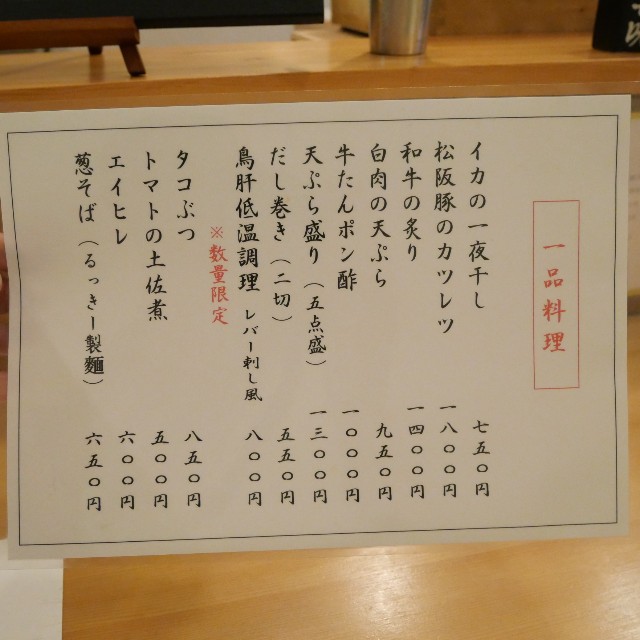 一品料理
イカの一夜干し 七五〇円
松阪豚のカツレツ 一八〇〇円
和牛の炙り 一四〇〇円
白肉の天ぷら 九五〇円
牛たんポン酢 一〇〇〇円
天ぷら盛り（五点盛） 一三〇〇円
だし巻き（二切） 五五〇円
鳥肝低温調理 レバー刺し風 八〇〇円
※数量限定
タコぶつ 八五〇円
トマトの土佐煮 五〇〇円
エイヒレ 六〇〇円
葱そば（るっきー製麺） 六五〇円